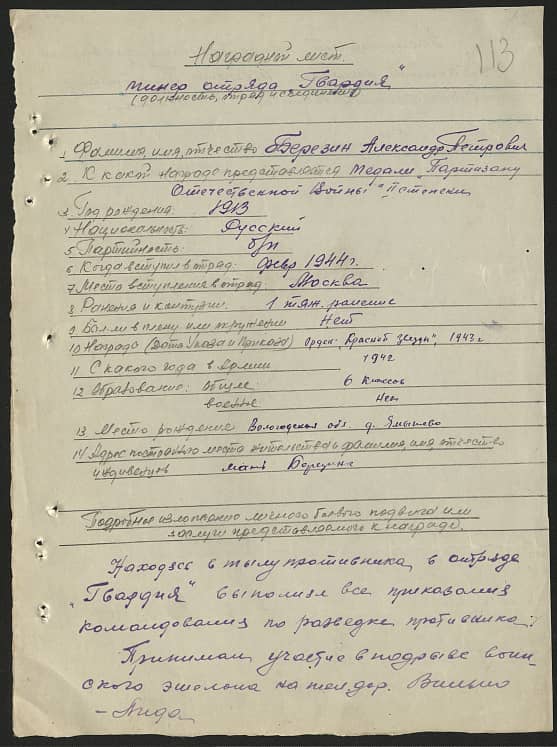 113
Наградной лист.
минер отряда "Гвардия"
(должность, отряд и соединение)
1 Фамилия, имя, отчество Березин Александр Петрович
2 К какой награде представляется медали "Партизану
Отечественной войны" II степени
3 Год рождения: 1913
4 Национальность: Русский
5 Партийность: б/п
6 Когда вступил в отряд: февр 1944 г.
7 Место вступления в отряд: Москва
8 Ранения и контузии. 1 тяж. ранение
9 Был ли в плену или окружении Нет
10 Награда (Дата Указа и Приказа) Орден "Красной звезды", 1943 г
11 С какого года в Армии 1942
12 Образование: общее 6 классов
военное Нет
13 Место рождение Вологодская обл. д.
14 Адрес постоянного места жительства и фамилия, имя отчество
иждивенцев мать
Подробное изложение личного боевого подвига или
заслуги представляемого к награде.
Находясь в тылу противника, в отряде
"Гвардия" выполнял все приказания
командования по разведке противника;
Принимал участие в подрыве воин-
ского эшелона на жел дор. Вильно
- Лида